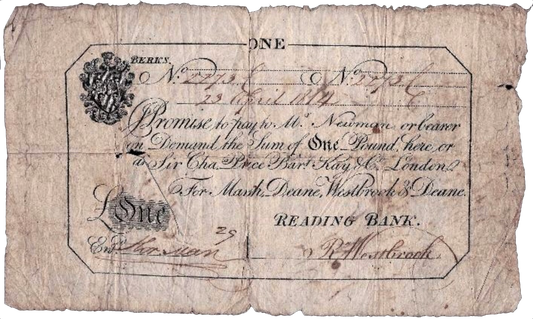 ONE
BERKS.
No. 2273 No. 2273
23 April 1814
Promise to pay to Mr. Newman or bearer
on Demand the Sum of One Pound here or
at Sir Cha. Price Bart. Kay & Co. London.
For Marsh, Deane, Westbrook & Deane.
£One READING BANK.
29
Entd. R Westbrook